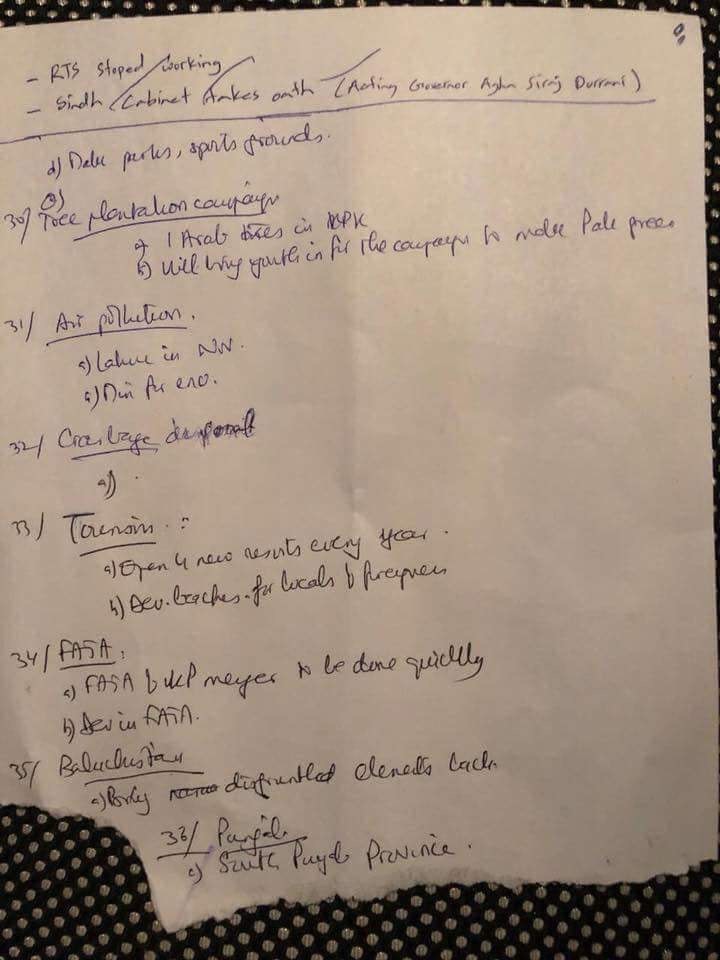 - RTS stoped working
- Sindh Cabinet takes oath (Acting Governor Agha Siraj Durrani)
d) Make parks, sports grounds.
30/ Tree plantation campaign
a) 1 Arab trees in KPK
b) Will bring youth in for the campaign to make Pak green
31/ Air pollution.
a) Lahore in NW.
b) Min for env.
32/ Garbage disposal
a)
33/ Tourism :
a) Open 4 new resorts every year.
b) Dev. beaches for locals & foreigners
34/ FATA:
a) FATA & KP merger to be done quickly
b) Dev in FATA.
35/ Baluchistan
a) Bring disgruntled elements back.
36/ Punjab
a) South Punjab Province.